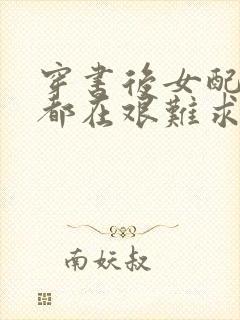 穿書後女配
都在艰難求
南妖叔